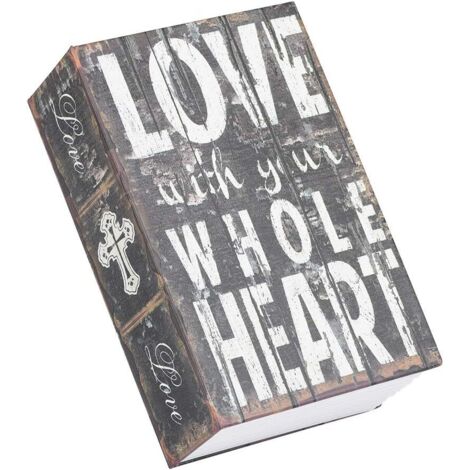 LOVE
with your
WHOLE
HEART
Love
Love